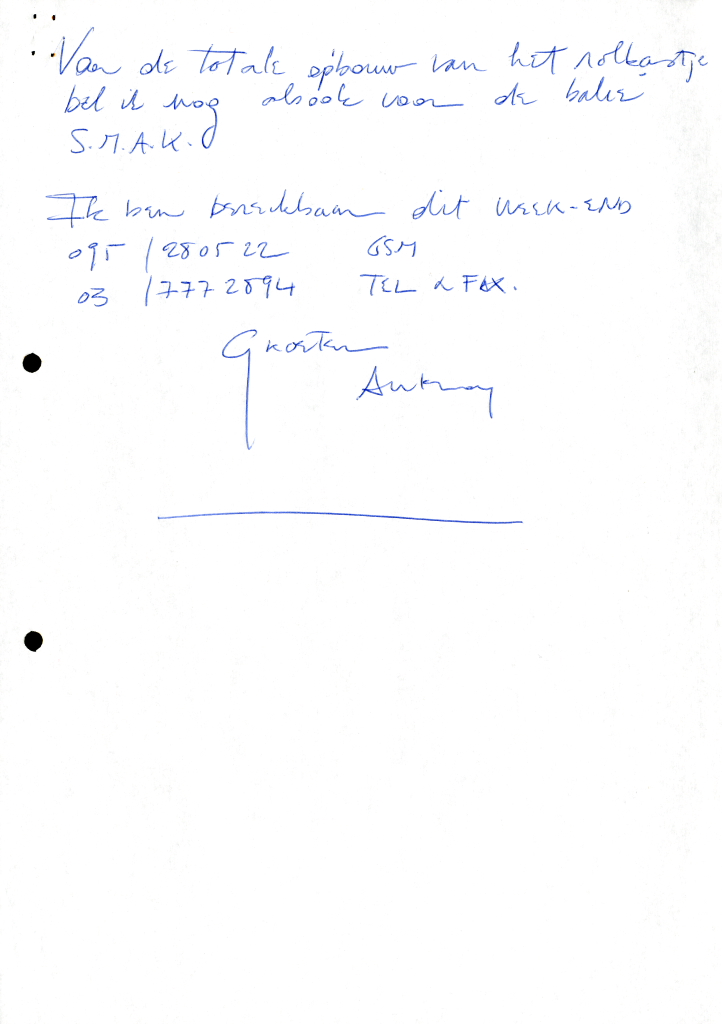 Voor de totale opbouw van het rolkastje
bel ik nog alsook voor de balie
S.M.A.K.
Ik ben bereikbaar dit WEEK-END
095 / 280522 GSM
03 / 777 2894 TEL & FAX.
Groeten